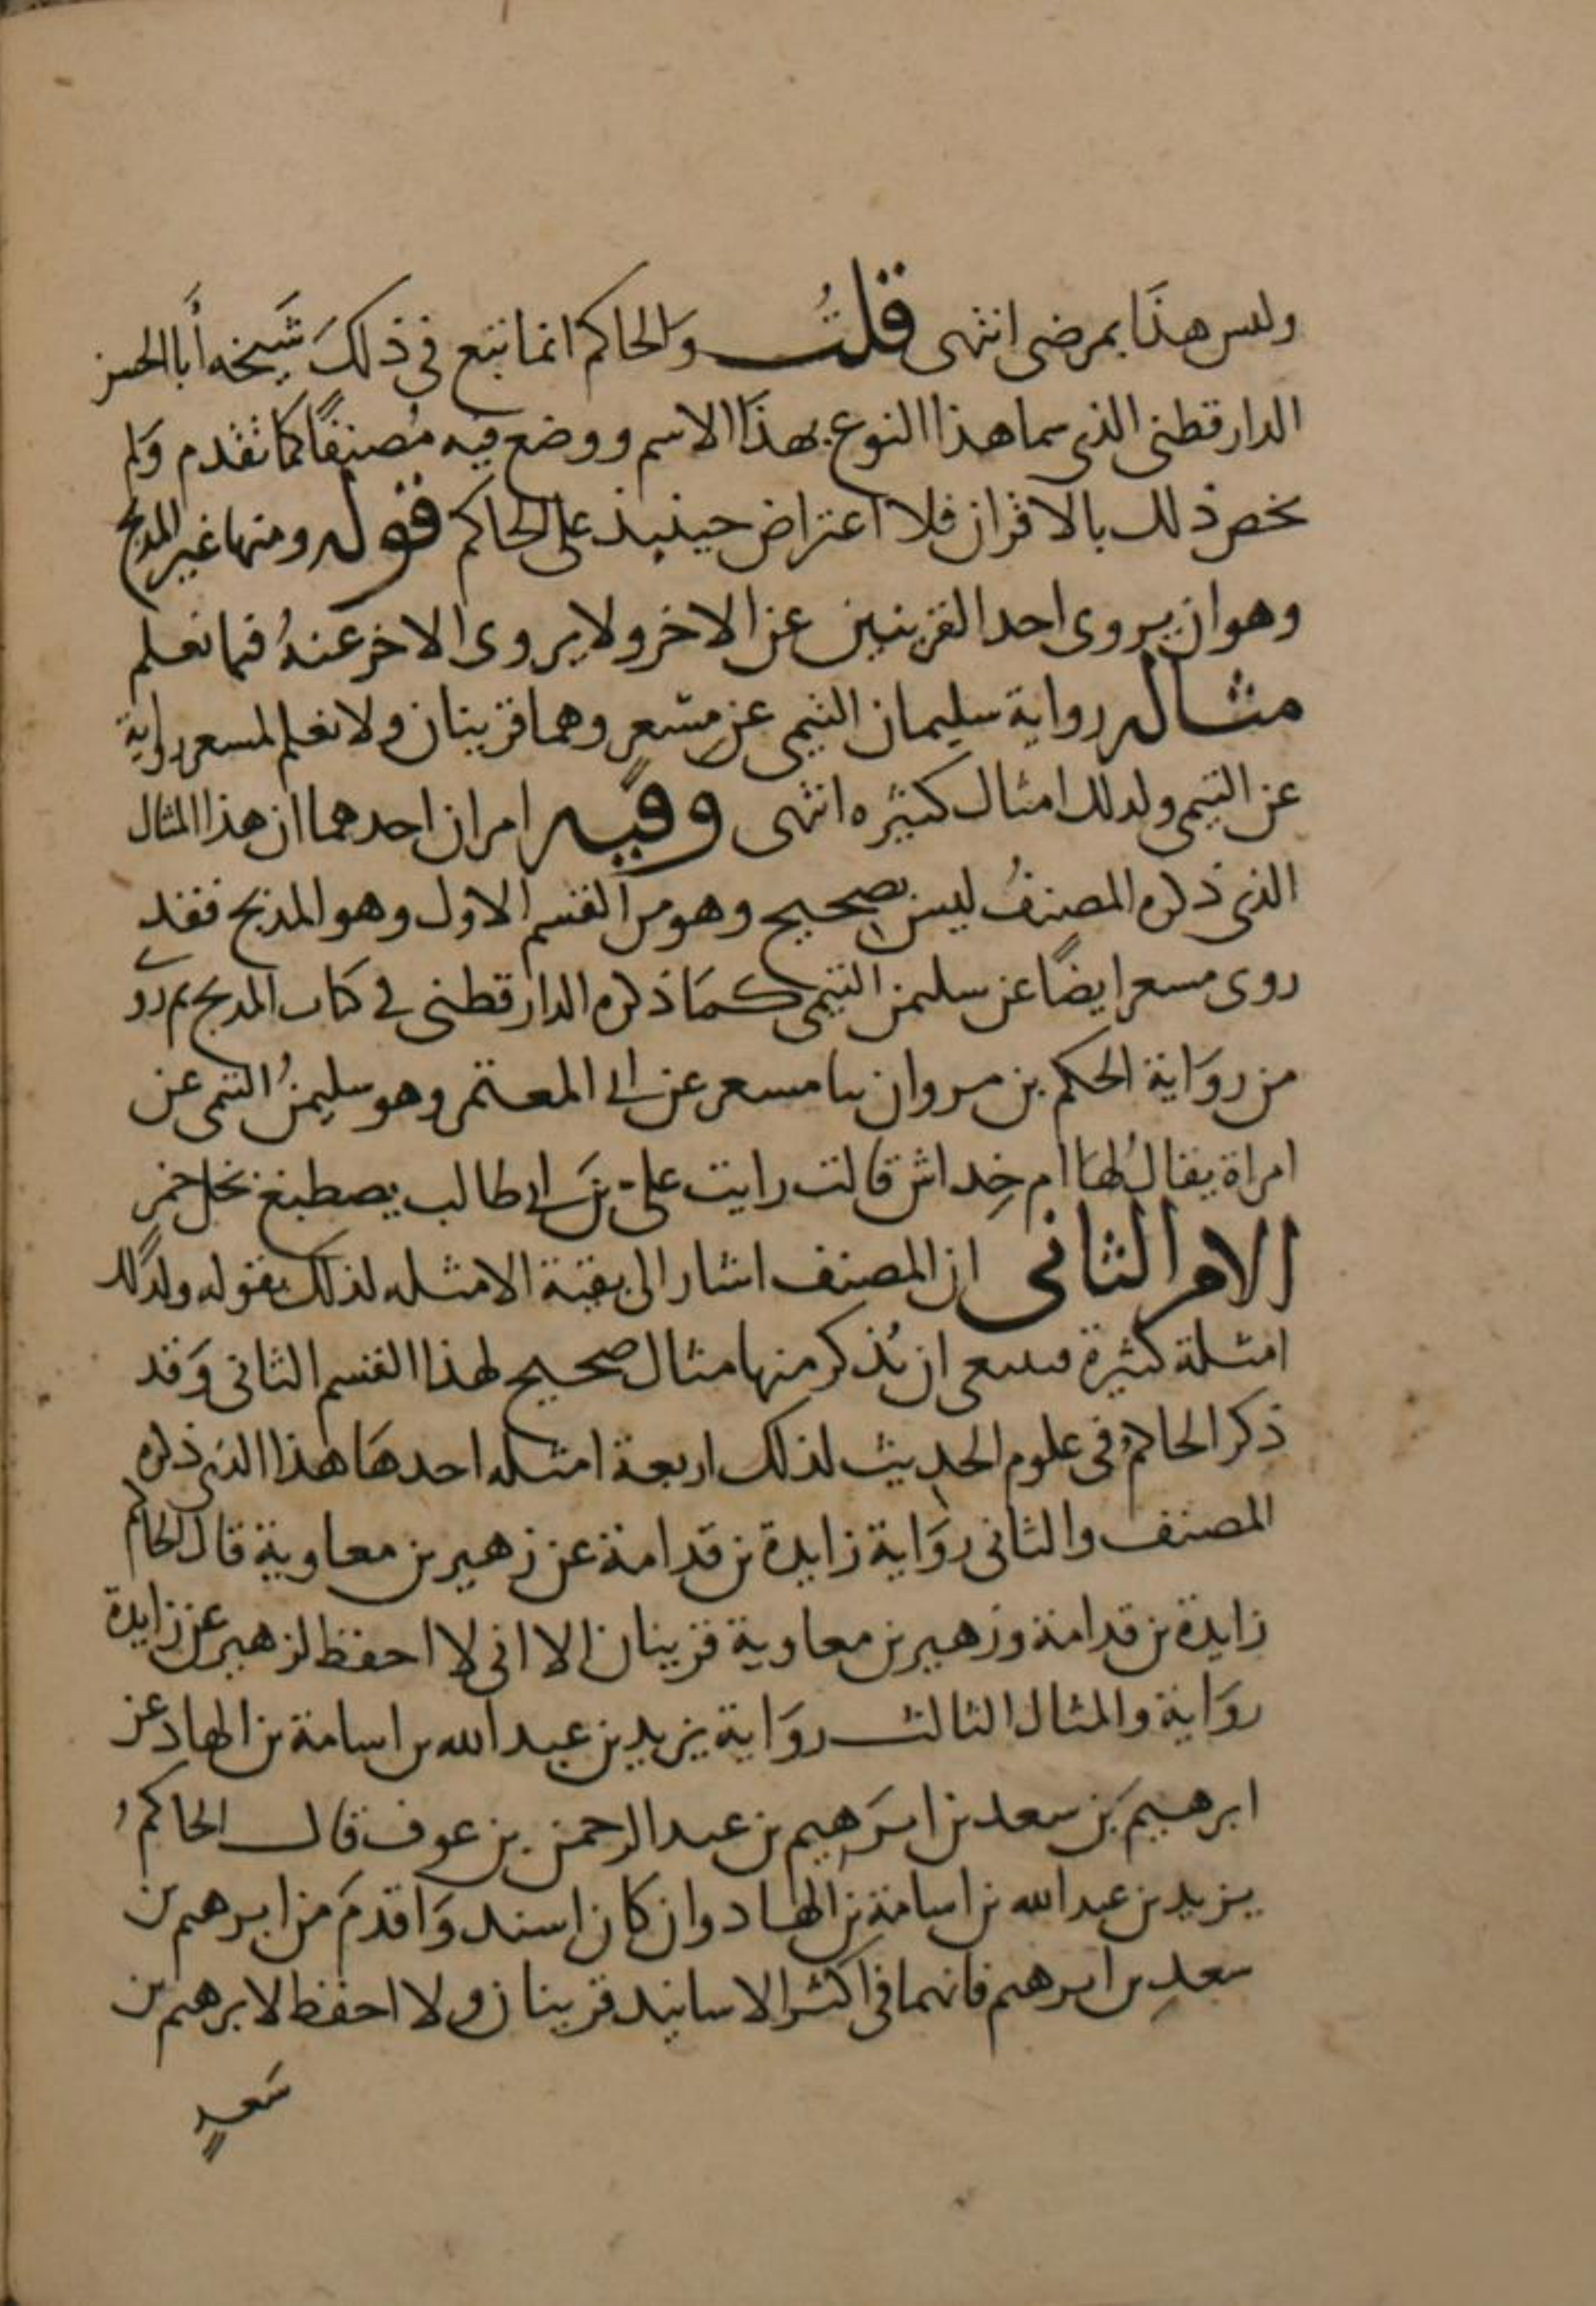 وليس هذَا بمرضى انتهى قلتُ وَالحاكم انما تبع فى ذلكَ شَيخه أبا الحسن
الدارقطنى الذى سما هذا النوع بهذَا الاسم ووضع فيه مُصنفًا كما تقدم وَلم
يخص ذلك بالاقران فلا اعتراض حينيذ على الحاكم قوله ومنها غير المدبج
وهو ان يروى احد القرينين عن الاخر ولا يروى الاخر عنهُ فيما نعلم
مثاله رواية سليمان التيمى عن مِسْعر وهما قرينان ولا نعلم لمسعر رواية
عن التيمى ولذلك امثال كثيره انتهى وفيه امران احدهما ان هذا المثال
الذى ذكره المصنفُ ليس بصحيح وهو من القسم الاول وهو المدبج فقد
روى مسعر ايضًا عن سليمن التيمى كمَا ذكره الدارقطنى فى كتاب المدبج ثم روَى
من روَاية الحكم بن مروان ثنا مسعر عن ابى المعتمر وهو سليمنُ التيمى عن
امراة يقالُ لهَا ام خِداش قالت رايت على بن ابى طالب يصطبغ بخل خمرٍ
الامر الثانى ان المصنف اشار الى بقية الامثله لذلك بقوله ولذلك
امثلة كثيرة فينبغى ان يُذكر منها مثال صحيح لهذا القسم الثانى وَقد
ذكر الحاكمُ فى علوم الحديث لذلك اربعة امثله احدهَا هذا الذى ذكره
المصنف والثانى روَاية زايدة بن قدامة عن زهير بن معاوية قال الحاكم
زايدة بن قدامة وزهير بن معاوية قرينان الا انى لا احفظ لزهير عن زايدة
روَاية والمثال الثالث روَاية يزيد بن عبد الله بن اسامة بن الهاد عن
ابرهيمَ بن سعد بن ابرَهيم بن عبد الرحمن بن عوف قال الحاكمُ
يزيد بن عبد الله بن اسامة بن الهاد وان كان اسند وَاقدمَ من ابرهيم بن
سعدِ بن ابرهيم فانهما فى اكثر الاسانيد قرينان ولا احفظ لابرهيم بن
سَعدٍ